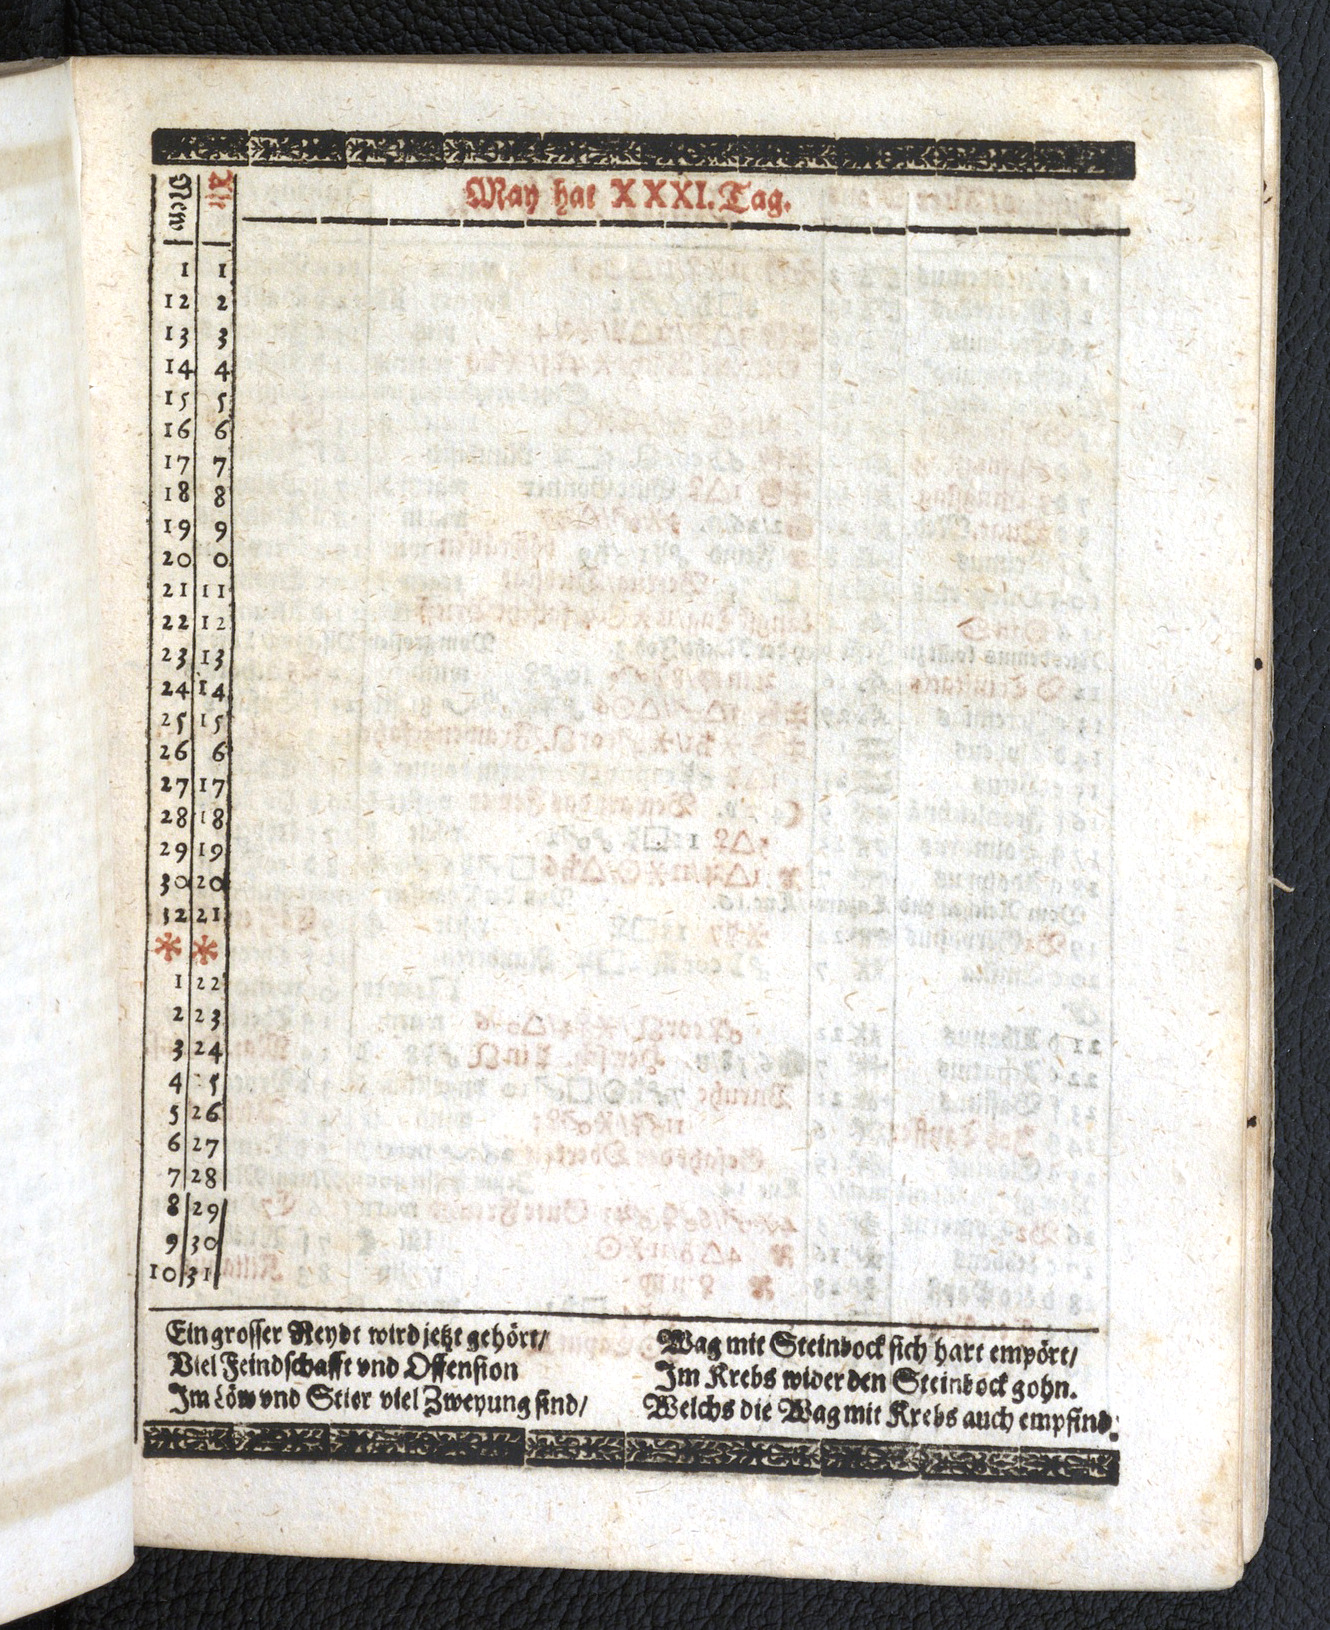 New Alt May hat XXXI. Tag.
1 1
12 2
13 3
14 4
15 5
16 6
17 7
18 8
19 9
20 0
21 11
22 12
23 13
24 14
25 15
26 6
27 17
28 18
29 19
30 20
32 21
* *
1 22
2 23
3 24
4 5
5 26
6 27
7 28
8 29
9 30
10 31
Ein grosser Neydt wird jetzt gehört/
Viel Feindschafft vnd Offension
Im Löw vnd Stier viel Zweyung sind/
Wag mit Steinbock sich hart empört/
Im Krebs wider den Steinbock gohn.
Welchs die Wag mit Krebs auch empfind.